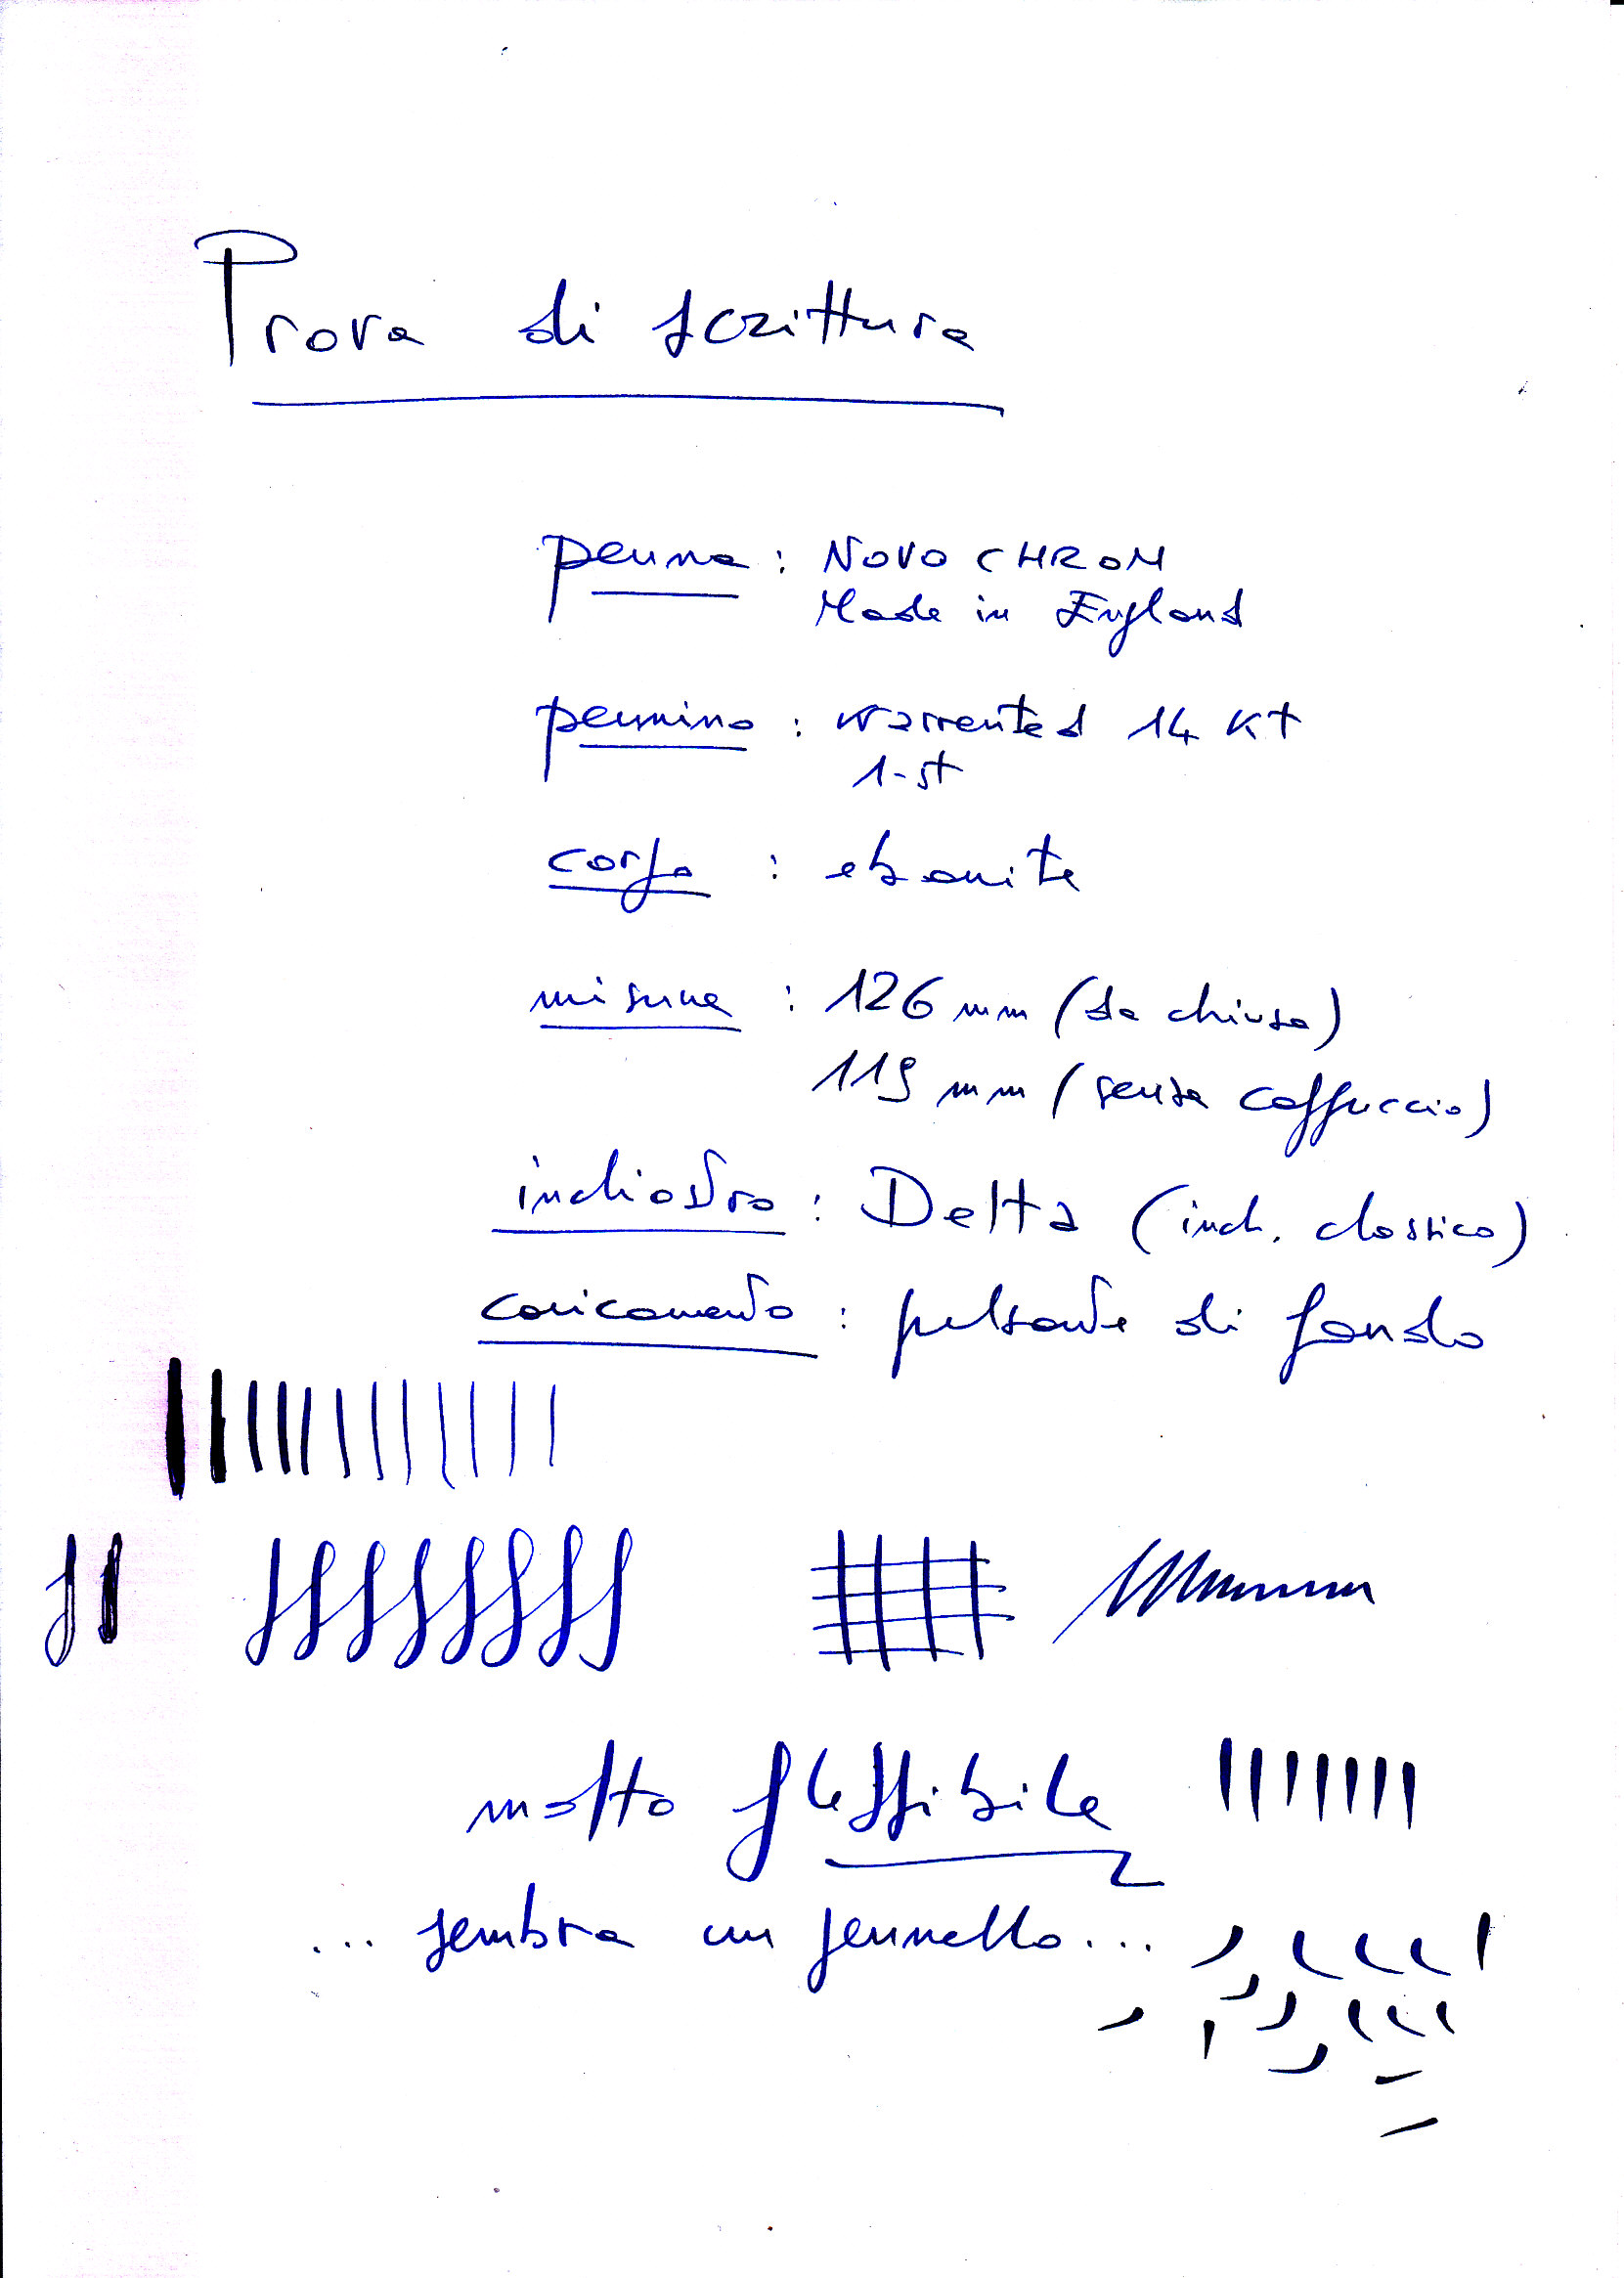 Prova di scrittura
penna : NOVO CHROM
Made in England
pennino : warrented 14 Kt
1-st
corpo : ebanite
misura : 126 mm (da chiusa)
119 mm (senza cappuccio)
inchiostro : Delta (inch. classico)
caricamento : pulsante di fondo
molto flessibile
... sembra un pennello ...